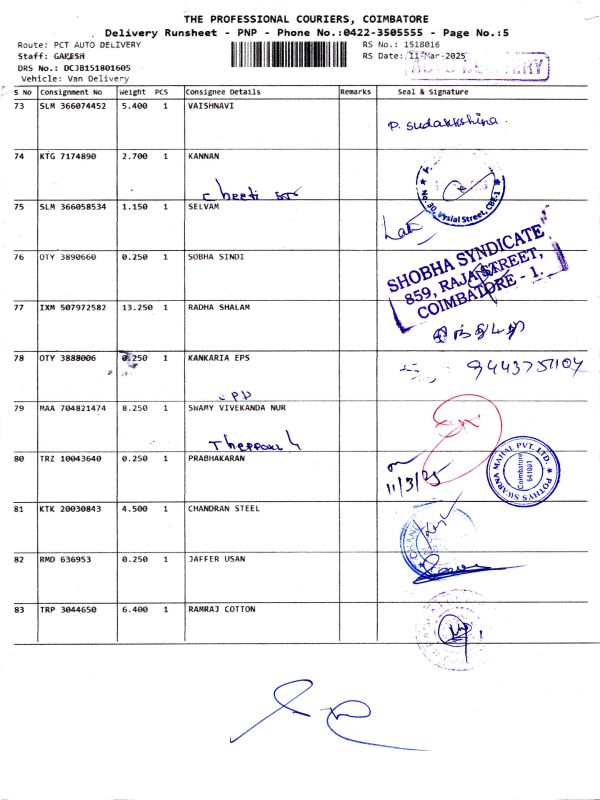 THE PROFESSIONAL COURIERS, COIMBATORE
Delivery Runsheet - PNP - Phone No.:0422-3505555 - Page No.:5
Route: PCT AUTO DELIVERY RS No.: 1518016
Staff: GAKESH RS Date: 11-Mar-2025
AUTO DELIVERY
DRS No.: DCJB151801605
Vehicle: Van Delivery
S No Consignment No Weight PCS Consignee Details Remarks Seal & Signature
73 SLM 366074452 5.400 1 VAISHNAVI
P. Sudakshina
74 KTG 7174890 2.700 1 KANNAN
No. 30, Vysial Street, CBE-1
Cheeti
75 SLM 366058534 1.150 1 SELVAM
76 OTY 3890660 0.250 1 SOBHA SINDI
SHOBHA SYNDICATE
859, RAJA STREET,
COIMBATORE - 1.
77 IXM 507972582 13.250 1 RADHA SHALAM
78 OTY 3888006 0.250 1 KANKARIA EPS
9443751104
79 MAA 704821474 8.250 1 SWAMY VIVEKANDA NUR
80 TRZ 10043640 0.250 1 PRABHAKARAN
11/3/25
POTHYS SWARNA MAHAL PVT. LTD.
Coimbatore
641001
81 KTK 20030843 4.500 1 CHANDRAN STEEL
82 RMD 636953 0.250 1 JAFFER USAN
83 TRP 3044650 6.400 1 RAMRAJ COTTON